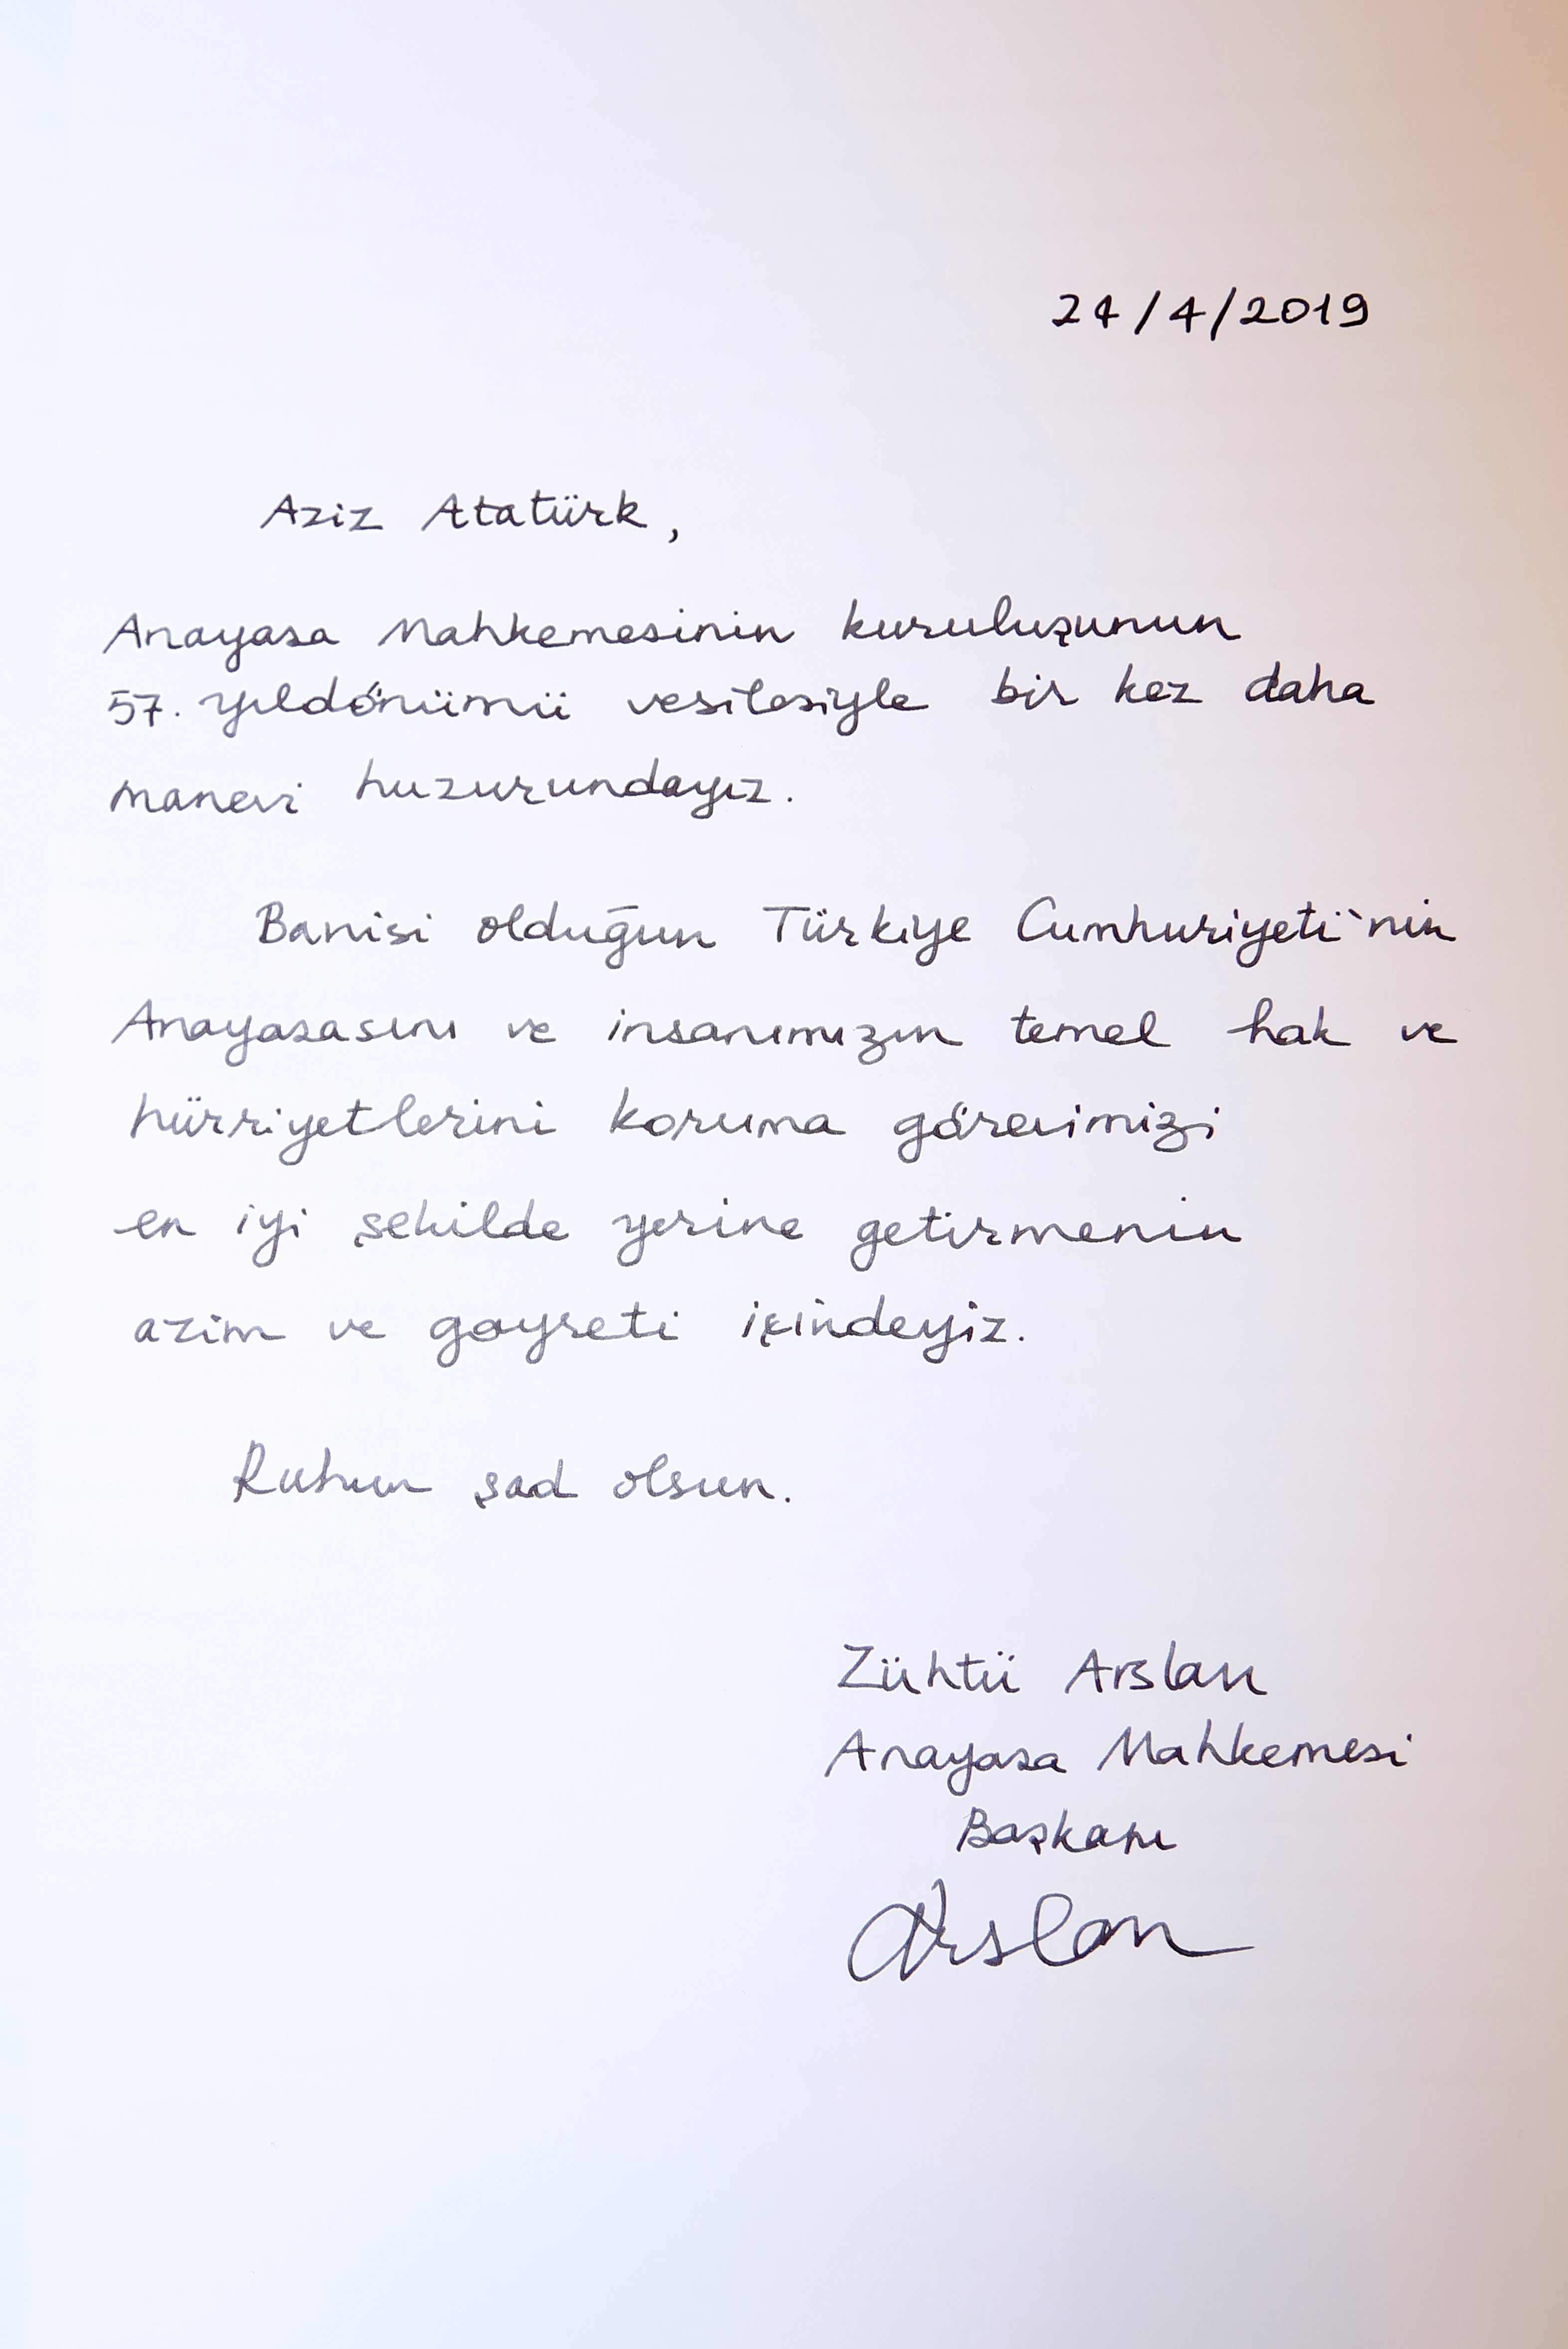 24/4/2019
Aziz Atatürk,
Anayasa Mahkemesinin kuruluşunun
57. yıldönümü vesilesiyle bir kez daha
manevi huzurundayız.
Banisi olduğun Türkiye Cumhuriyeti'nin
Anayasasını ve insanımızın temel hak ve
hürriyetlerini koruma görevimizi
en iyi şekilde yerine getirmenin
azim ve gayreti içindeyiz.
Ruhun şad olsun.
Zühtü Arslan
Anayasa Mahkemesi
Başkanı
Arslan